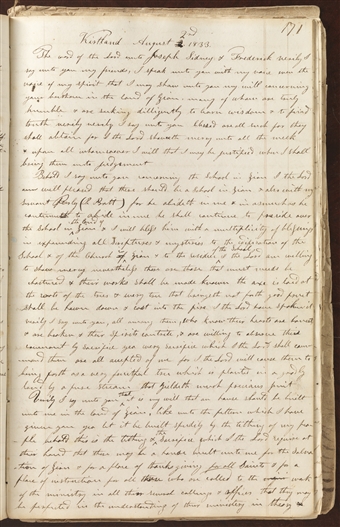 171
Kirtland August 2nd 1833
The word of the Lord unto Joseph Sidney & Frederick verily I
say unto you my friends, I speak unto you with my voice even the
voice of my spirit that I may shew unto you my will concerning
your brethren in the land of Zion many of whom are truly
humble & are seeking dilligently to learn wisdom & to find
truth verily verily I say unto you blessed are all such for they
shall obtain for I the Lord sheweth mercy unto all the meek
& upon all whomsoever I will that I may be justified when I shall
bring them into judgement
Behold I say unto you concerning the school in Zion I the Lord
am well pleased that there should be a school in Zion & also with my
servant Parly (P Pratt) for he abideth in me & inasmuch as he
continueth to abide in me he shall continue to preside over
the School in Zion & I will bless him with a multiplicity of blessings
in expounding all scriptures & mysteries to the edification of the
School & of the Church in Zion & to the residue of the School I the Lord am willing
to shew mercy nevertheless there are those that must needs be
chastened & their works shall be made known the axe is laid at
the root of the trees & every tree that bringeth not forth good fruit
shall be hewn down & cast into the fire I the Lord have spoken it
verily I say unto you, all among them, who know their hearts are honest
& are broken & their spirits contrite & are willing to observe their
covenants by sacrifice yea every sacrifice which I the Lord shall com
mand them are all accepted of me for I the Lord will cause them to
bring forth as a very fruitful tree which is planted in a goodly
land by a pure stream that yieldeth much precious fruit
Verily I say unto you that it is my will that an house should be built
unto me in the land of Zion, like unto the pattern which I have
given you yea let it be built speedily by the tithing of my peo
ple behold this is the tithing & the sacrifice which I the Lord require at
their hand that there may be a house built unto me for the salva
tion of Zion & for a place of thanksgiving for all Saints & for a
place of instruction for all those who are called to the work
of the ministry in all their several callings & offices that they may
be perfected in the understanding of their ministry in theory